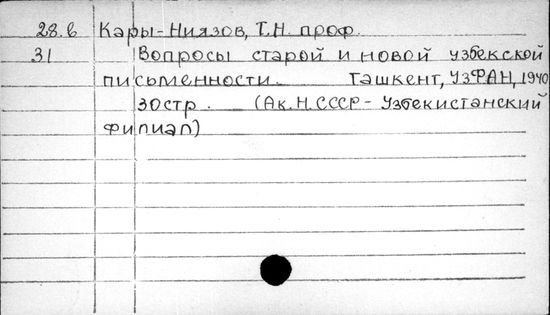 28.б Кары-Ниязов, Т.Н. проф.
31 Вопросы старой и новой узбекской
письменности. Ташкент, УзФАН, 1940
30стр. (Ак.Н.СССР-Узбекистанский
филиал)